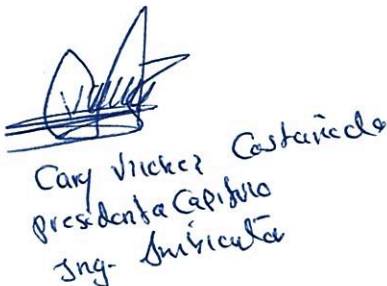 Cary Vilchez Castañeda
presidenta Capitulo
Ing. Ambiental